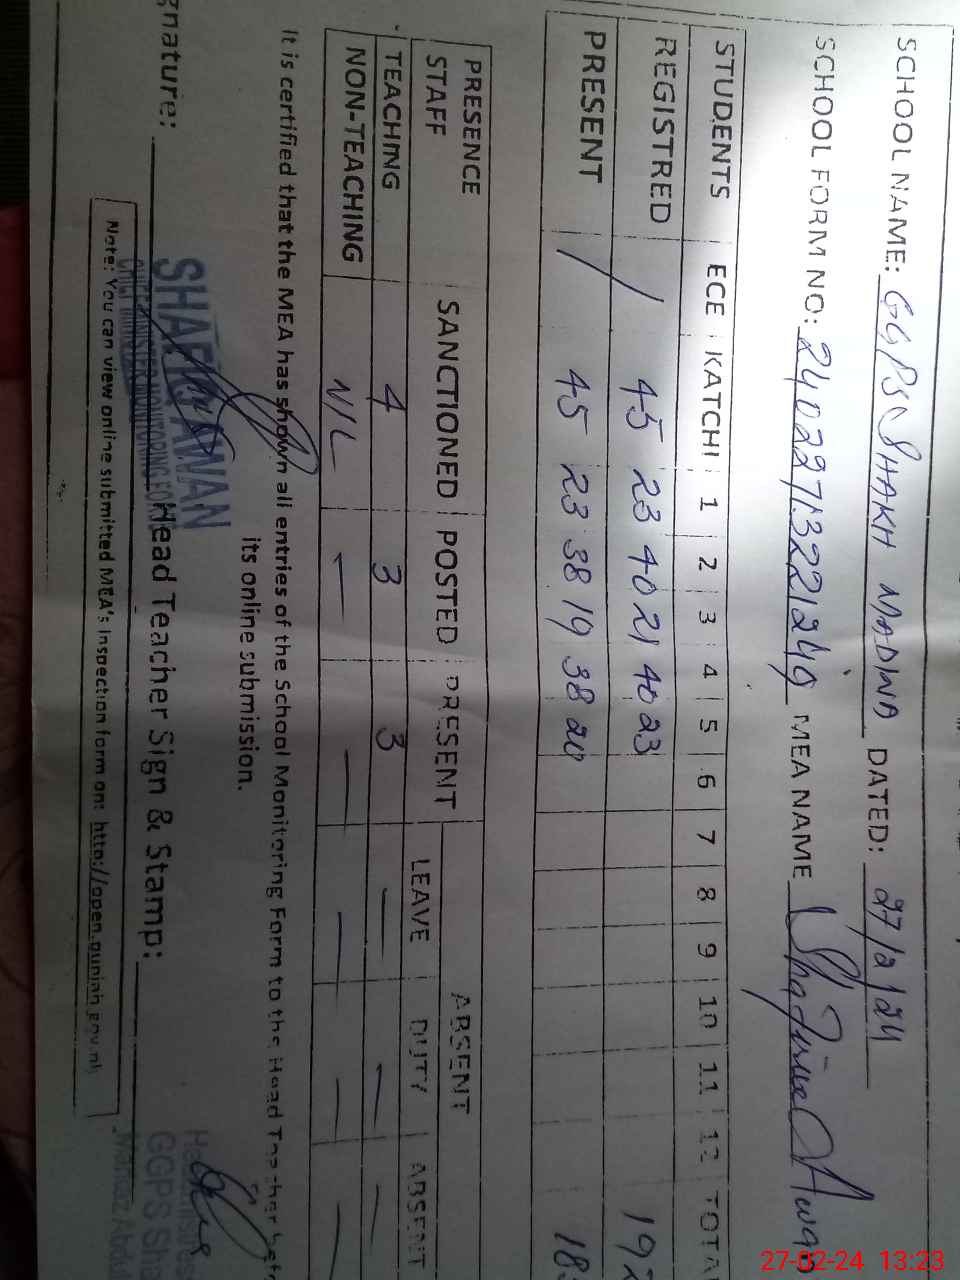 SCHOOL NAME: GGPS SHAKH MADINA DATED: 27/2/24
SCHOOL FORM NO: 24022713221249 MEA NAME Shafique Awan
STUDENTS ECE KATCHI 1 2 3 4 5 6 7 8 9 10 11 12 TOTA
REGISTRED / 45 23 40 21 40 23 192
PRESENT / 45 23 38 19 38 20 18
PRESENCE STAFF SANCTIONED POSTED PRESENT ABSENT
LEAVE DUTY ABSENT
TEACHING 4 3 3 — — —
NON-TEACHING NIL — — — — —
It is certified that the MEA has shown all entries of the School Monitoring Form to the Head Teacher befo
its online submission.
gnature: Head Teacher Sign & Stamp:
SHAFIQ AWAN
CHIEF MINISTER MONITORING FOR
GGPS Sha
Note: You can view online submitted MEA's Inspection form on: http://open.punjab.gov.pk
27-02-24 13:23